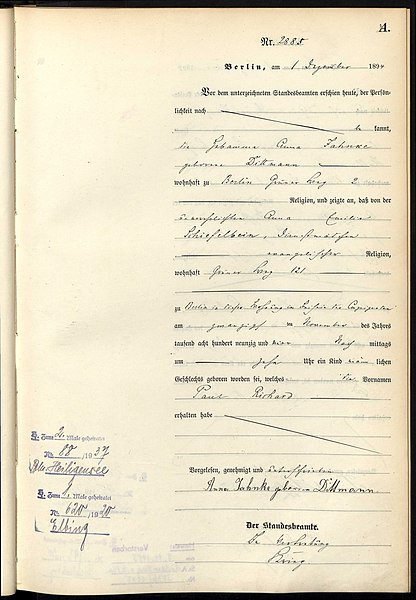 A.
Nr. 2885
Berlin, am 1 Dezember 1894
Vor dem unterzeichneten Standesbeamten erschien heute, der Persön-
lichkeit nach
be kannt,
die Hebamme Anna Jahnke
geborene Dittmann
wohnhaft zu Berlin Grüner Weg 2
Religion, und zeigte an, daß von der
unverehelichten Anna Emilie
Schiefelbein, Dienstmädchen
evangelischer Religion,
wohnhaft Grüner Weg 121
zu Berlin in
am zwanzigsten November des Jahres
tausend acht hundert neunzig und vier Nach mittags
um zehn Uhr ein Kind männ lichen
Geschlechts geboren worden sei, welches die Vornamen
Paul Richard
erhalten habe
Vorgelesen, genehmigt und unterschrieben
Anna Jahnke geborene Dittmann
Der Standesbeamte.
In Vertretung
Zum 2. Male geheiratet
Nr. 88 / 1937
Bln Heiligensee
Zum 1. Male geheiratet
Nr. 620 / 1920
Elbing
Verstorben